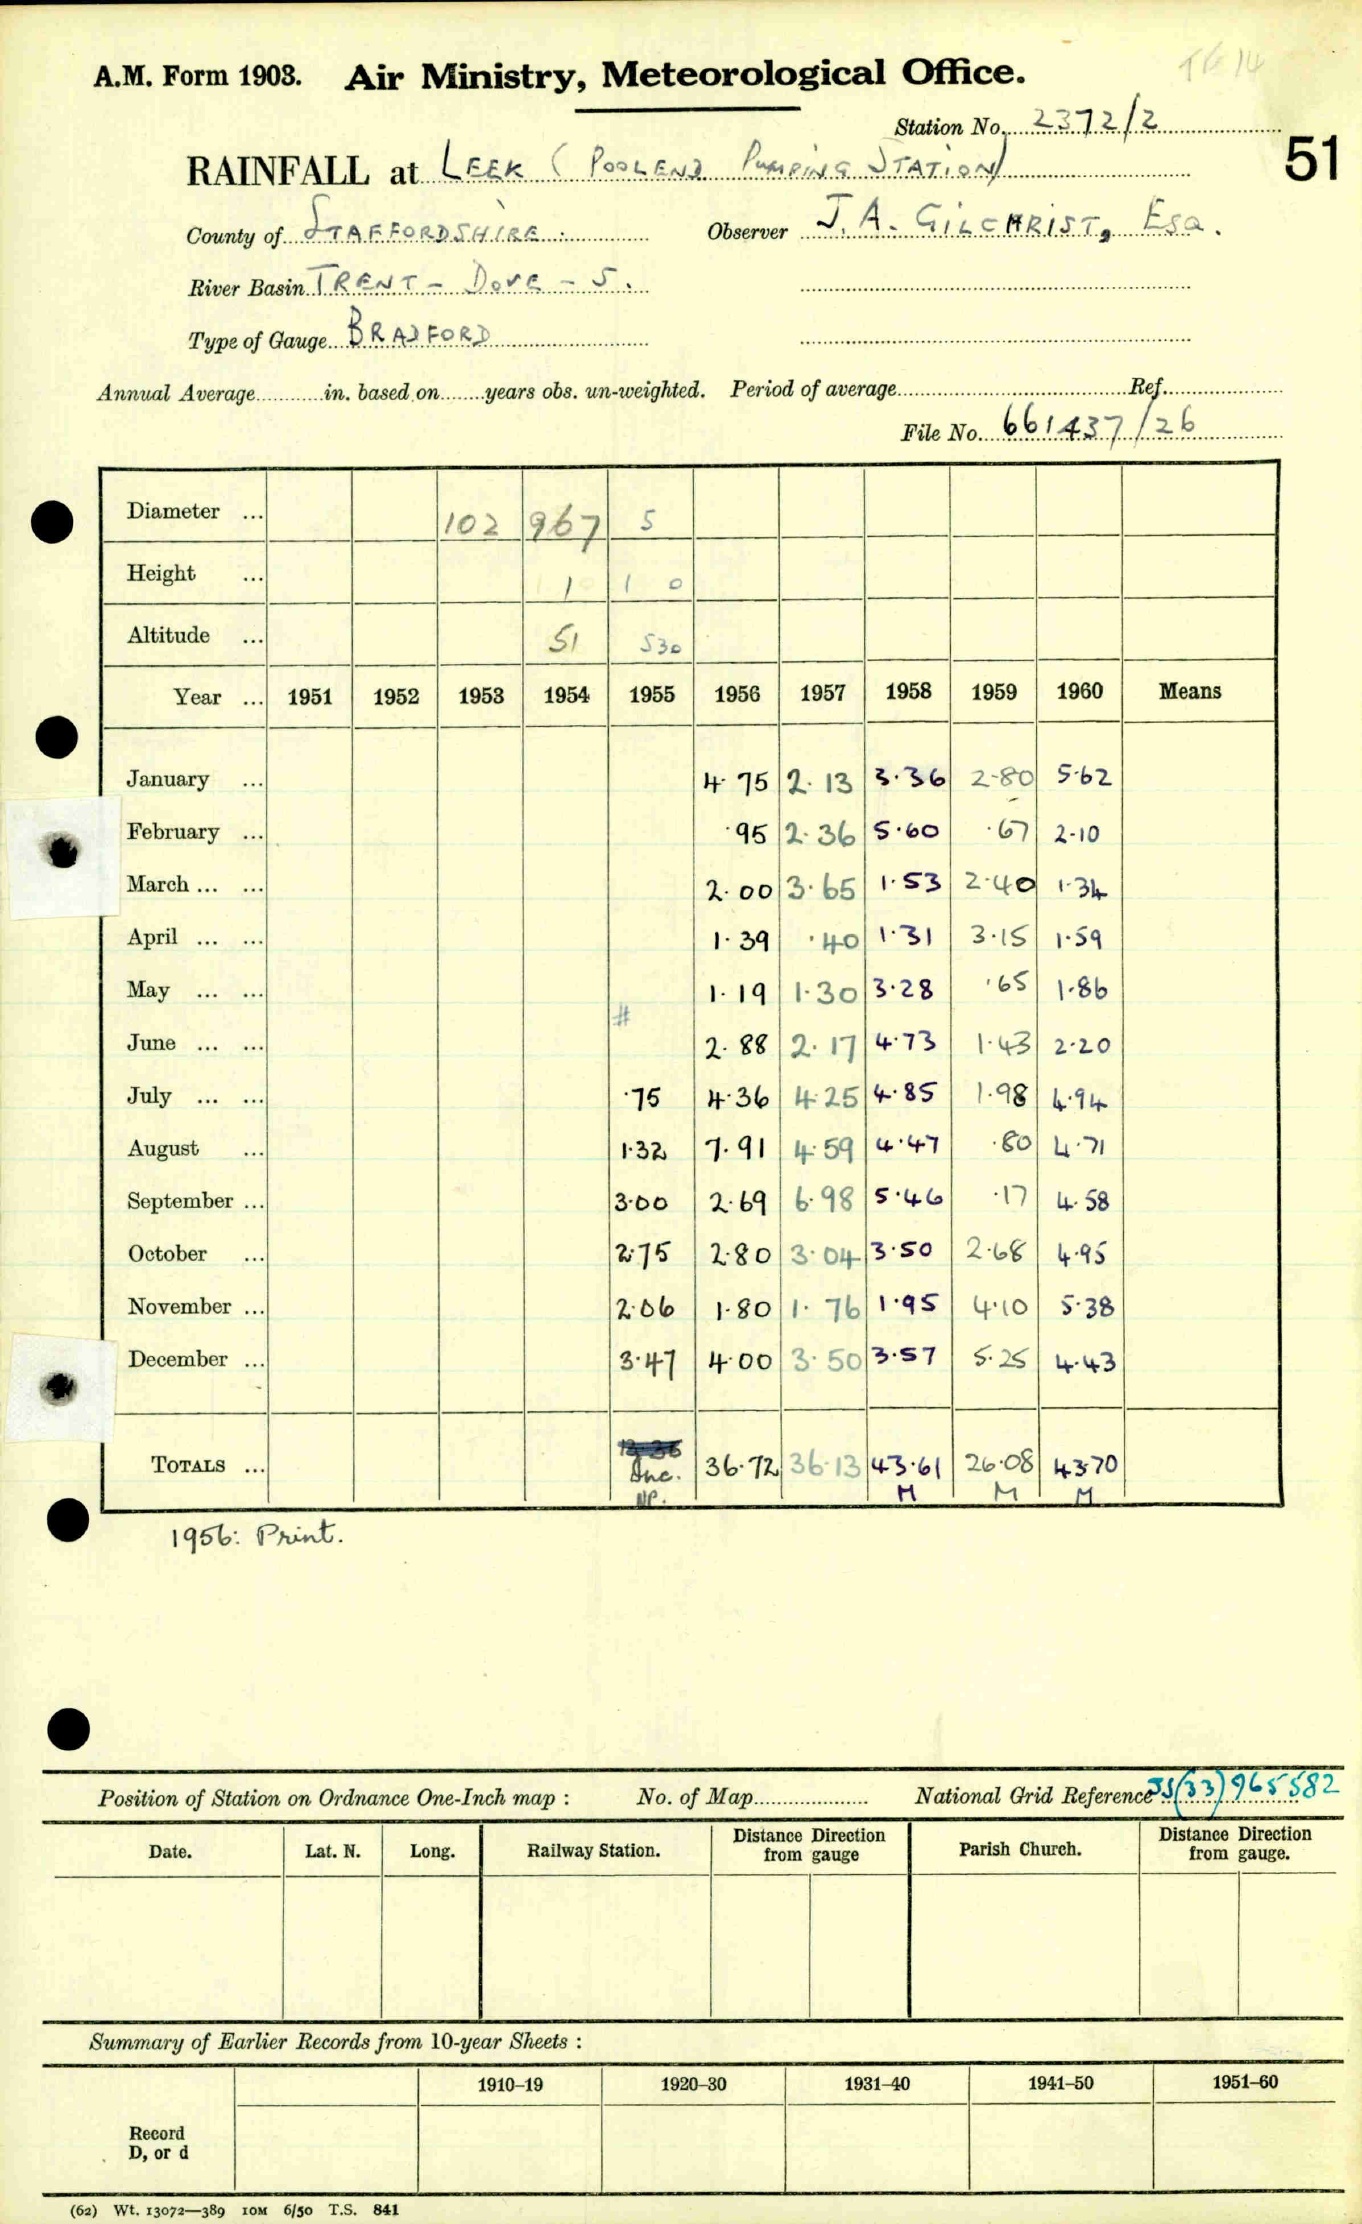 TK 14
A.M. Form 1903. Air Ministry, Meteorological Office.
Station No. 2372/2
51
RAINFALL at LEEK (POOLEND PUMPING STATION)
County of STAFFORDSHIRE. Observer J. A. GILCHRIST, ESQ.
River Basin TRENT - DOVE - 5.
Type of Gauge BRADFORD
Annual Average in. based on years obs. un-weighted. Period of average Ref.
File No. 661437/26
Diameter ... 102 967 5
Height ... 1 1 0
Altitude ... 51 530
Year ... 1951 1952 1953 1954 1955 1956 1957 1958 1959 1960 Means
January ... 4.75 2.13 3.36 2.80 5.62
February ... .95 2.36 5.60 .67 2.10
March ... ... 2.00 3.65 1.53 2.40 1.34
April ... ... 1.39 .40 1.31 3.15 1.59
May ... ... 1.19 1.30 3.28 .65 1.86
#
June ... ... 2.88 2.17 4.73 1.43 2.20
July ... ... .75 4.36 4.25 4.85 1.98 4.94
August ... 1.32 7.91 4.59 4.47 .80 4.71
September ... 3.00 2.69 6.98 5.46 .17 4.58
October ... 2.75 2.80 3.04 3.50 2.68 4.95
November ... 2.06 1.80 1.76 1.95 4.10 5.38
December ... 3.47 4.00 3.50 3.57 5.25 4.43
TOTALS ... Inc. 36.72 36.13 43.61 26.08 43.70
NP. M M M
1956: Print.
Position of Station on Ordnance One-Inch map : No. of Map National Grid Reference (33) 965582
Date. Lat. N. Long. Railway Station. Distance from gauge Direction Parish Church. Distance from gauge. Direction
Summary of Earlier Records from 10-year Sheets :
1910–19 1920–30 1931–40 1941–50 1951–60
Record
D, or d
(62) Wt. 13072—389 10M 6/50 T.S. 841